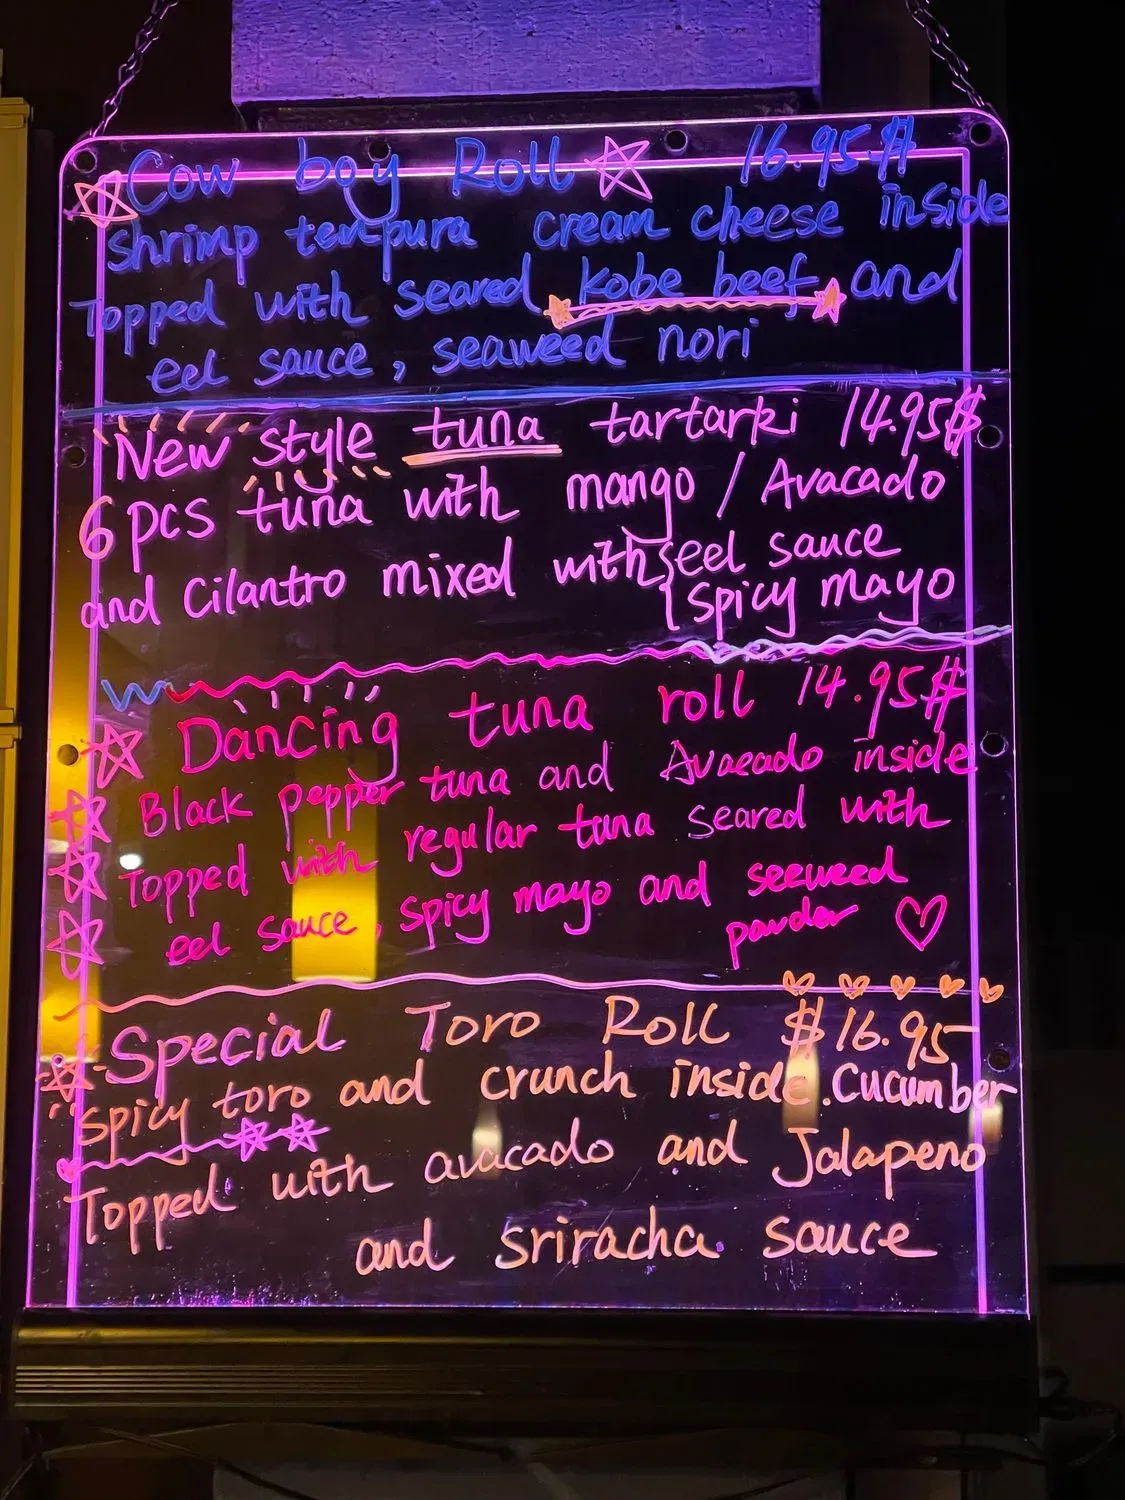 Cow boy Roll 16.95$
shrimp tempura cream cheese inside
Topped with seared kobe beef and
eel sauce, seaweed nori
New style tuna tartarki 14.95$
6pcs tuna with mango / Avacado
and cilantro mixed with eel sauce
spicy mayo
Dancing tuna roll 14.95$
Black pepper tuna and Avacado inside
Topped with regular tuna seared with
eel sauce, spicy mayo and seeweed
powder
Special Toro Roll $16.95
spicy toro and crunch inside. Cucumber
Topped with avacado and Jalapeno
and sriracha sauce